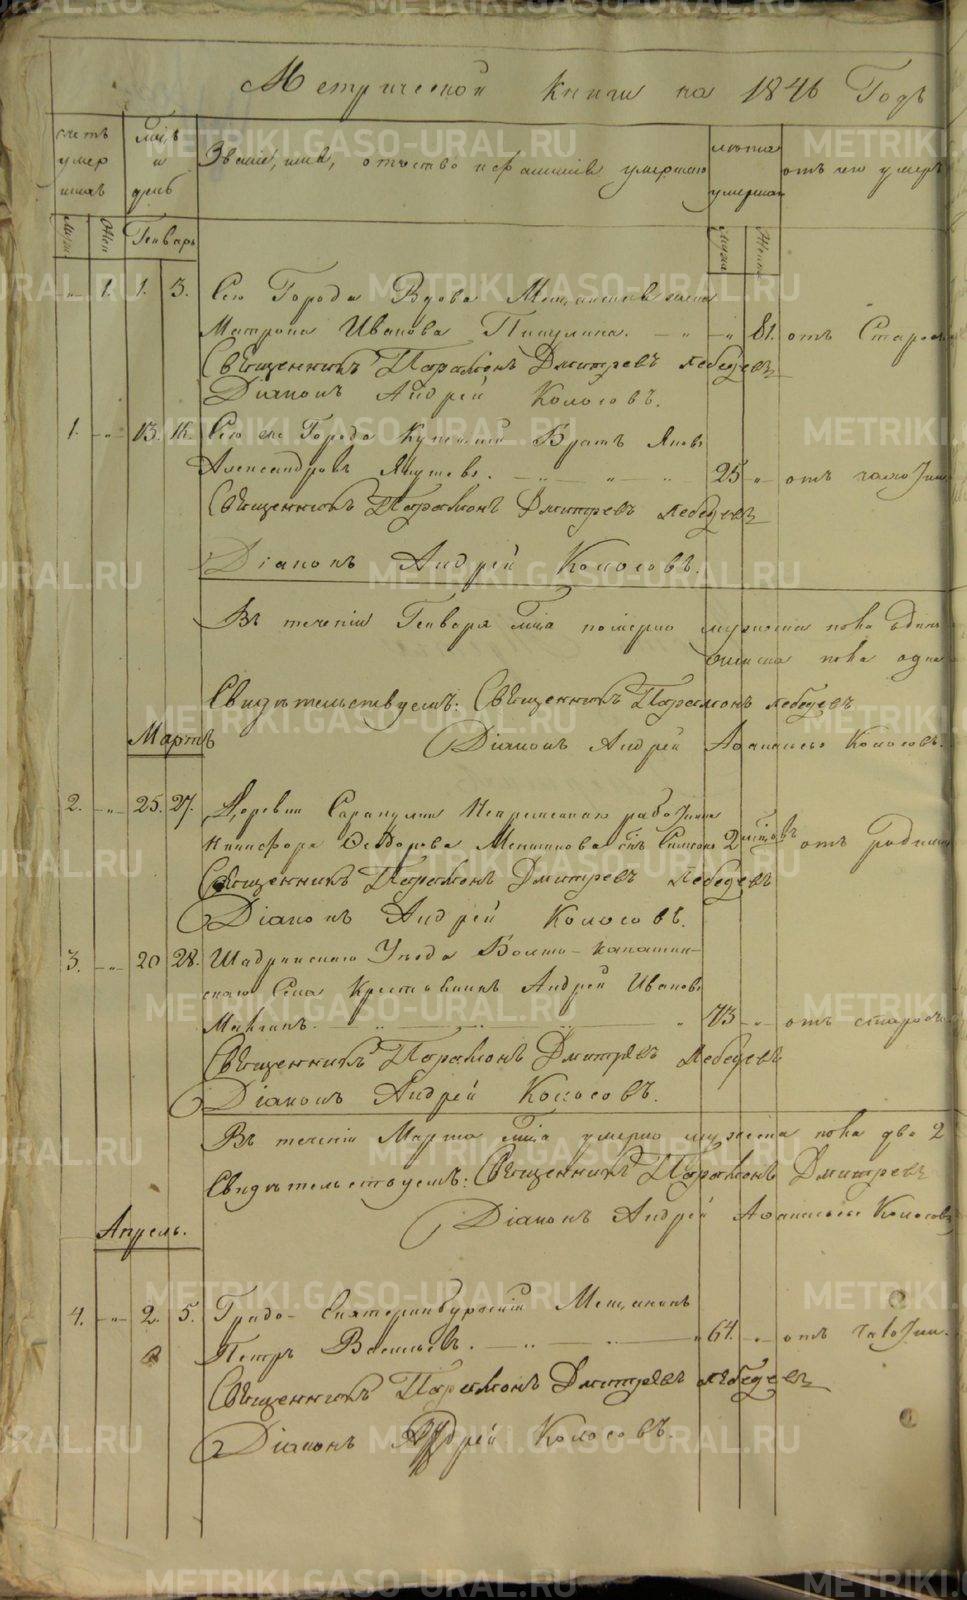 Метрической книги на 1846 Годъ
счетъ умершихъ
Мѣсяцъ и день
Званіе, имя, отчество и фамилія умершаго
лѣта умершаго
отъ чего умеръ
муж.
жен.
Генварь
муж.
Женс.
„ 1. 1. 3. Сего Города Вдова Мещанская жена
Матрона Иванова 81. отъ Старости
Священникъ Парамонъ Дмитревъ Лебедевъ
Діаконъ Андрей Колосовъ.
1. „ 13. 16. Сего же Города Купеческій Братъ Яковъ
Александровъ 25 „ отъ чахотки
Священникъ Парамонъ Дмитревъ Лебедевъ
Діаконъ Андрей Колосовъ.
Въ теченіи Генваря м-ца померло мужеска пола одинъ
женска пола одна
Свидѣтельствуемъ: Священникъ Парамонъ Лебедевъ
Діаконъ Андрей Афанасьевъ Колосовъ.
Мартъ
2. „ 25. 27. Деревни Сарапулки Непременнаго работника
Никифора Ѳедорова Меншикова сынъ Симеонъ 2 мѣсяцовъ отъ родимца
Священникъ Парамонъ Дмитревъ Лебедевъ
Діаконъ Андрей Колосовъ.
3. „ 20 28. Шадринскаго Уѣзда
Села Крестьянинъ Андрей Ивановъ
73 „ отъ старости
Священникъ Парамонъ Дмитревъ Лебедевъ
Діаконъ Андрей Колосовъ.
Въ теченіи Марта м-ца умерло мужеска пола два 2
Свидѣтельствуемъ: Священникъ Парамонъ Дмитревъ
Діаконъ Андрей Афанасьевъ Колосовъ
Апрель.
4. „ 2. 5. Градо-Екатеринбургскій Мещанинъ
Петръ Васильевъ. 64. „ отъ чахотки.
Священникъ Парамонъ Дмитревъ Лебедевъ
Діаконъ Андрей Колосовъ.
METRIKI.GASO-URAL.RU